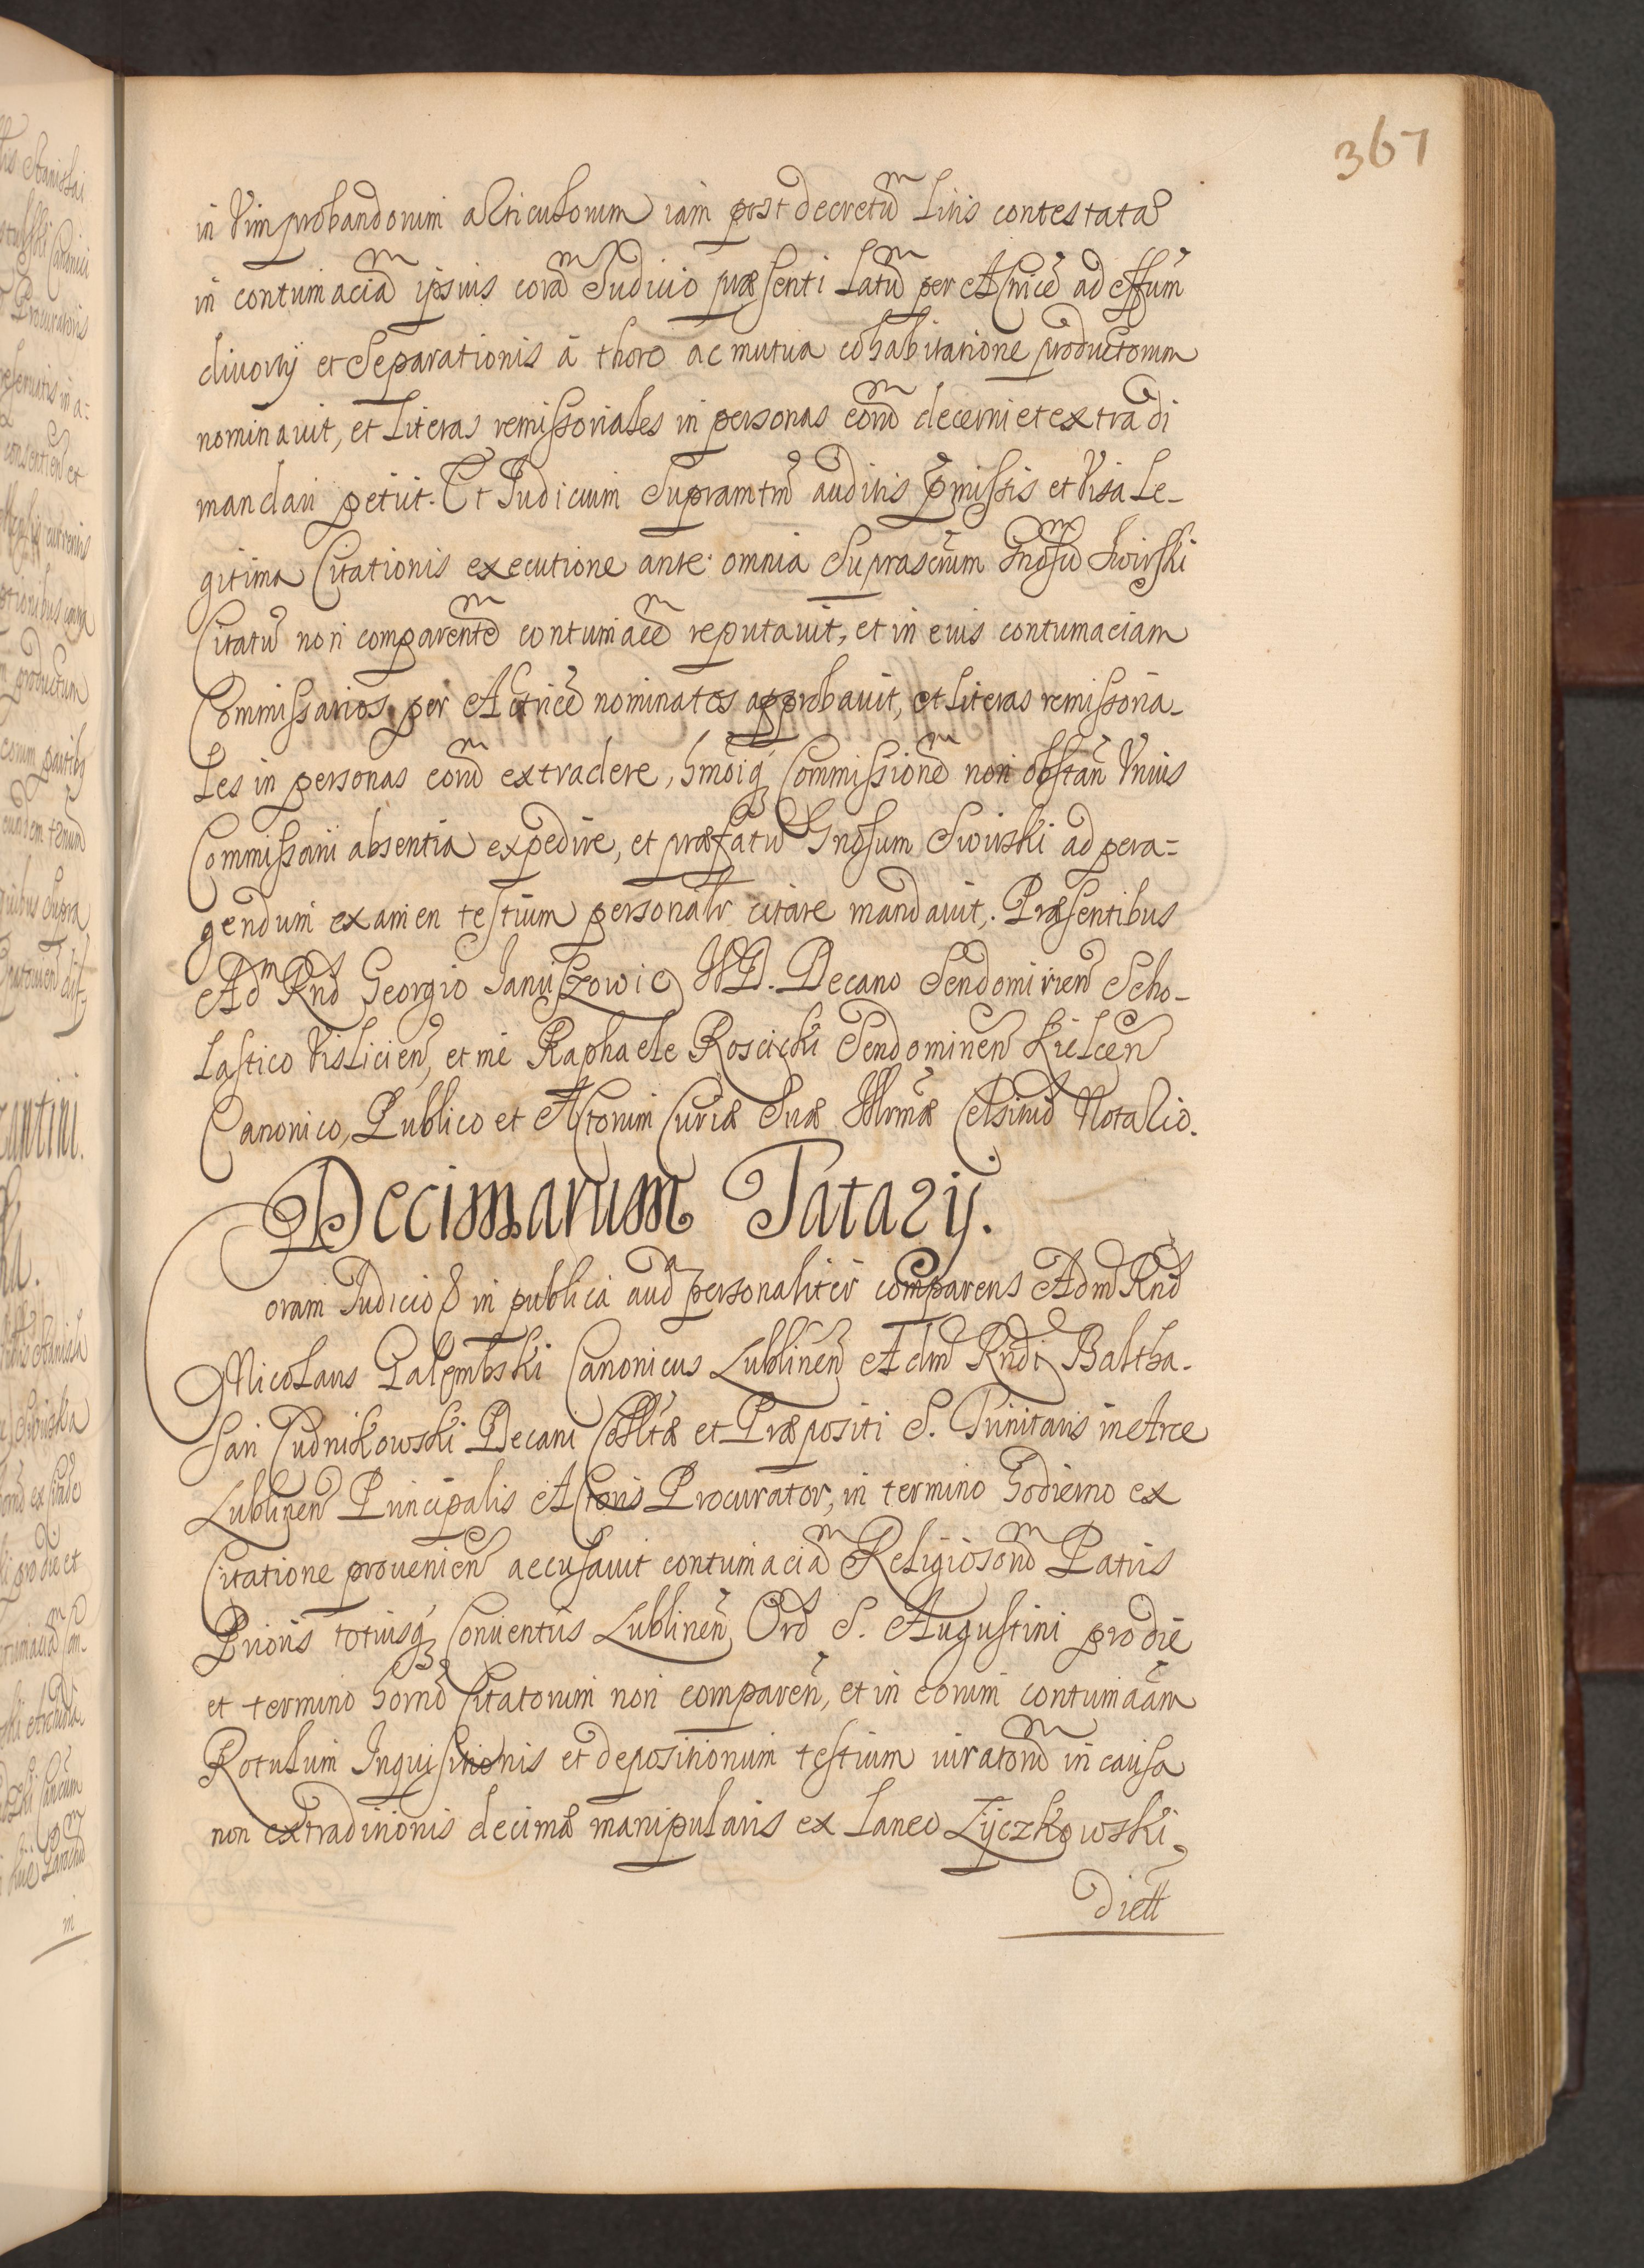 367
in Vim probandorum articulorum iam post decretũ Litis contestatæ
in contumaciam ipsius coram Judicio præsenti Latum per Actricẽ ad effũm
divorÿ et Separationis à thoro ac mutua cohabitatione productorum
nominavit, et Literas remissoriales in personas eorum decerni et extradi
mandari petiit. Et Judicium Supramtũ auditis præmissis et Visa Le-
gitima Citationis executione ante omnia Suprascrũm Gnosum Swirski
Citatũ non comparentem contumacem reputavit, et in eius contumaciam
Commissarios per Actricẽ nominatos approbavit, et Literas remissoria-
Les in personas eorum extradere, hmõiq; Commissionem non obstañ Vnius
Commissarii absentia expedire, et præfatũ Gnosum Swirski ad pera=
gendum examen testium personalr citare mandavit. Præsentibus
Adm Rnd Georgio Januszowic VID. Decano Sendomirieñ Scho-
Lastico Vislicieñ, et me Raphaele Roscicki Sendomireñ Kielceñ
Canonico, Publico et Actorum Curiæ Suæ Illrmæ Celsnis Notario.
Decimarum Tatarÿ.
Coram Judicio & in publica aud personaliter comparens Adm Rnd
Nicolaus Galembski Canonicus Lublineñ Adm Rndi Baltha-
sari Cudnikowski Decani Colltæ et Præpositi S. Trinitatis in Arce
Lublineñ Principalis Actoris Procurator, in termino hodierno ex
Citatione provenieñ accusavit contumaciam Religiosorum Patris
Prioris totiusq; Conventus Lublineñ Ord S. Augustini pro die
et termino horno Citatorum non compareñ, et in eorum contumaãm
Rotulum Inquisitionis et depositionum testium iuratorum in causa
non extraditionis decimæ manipularis ex Laneo Zÿczkowski
diett